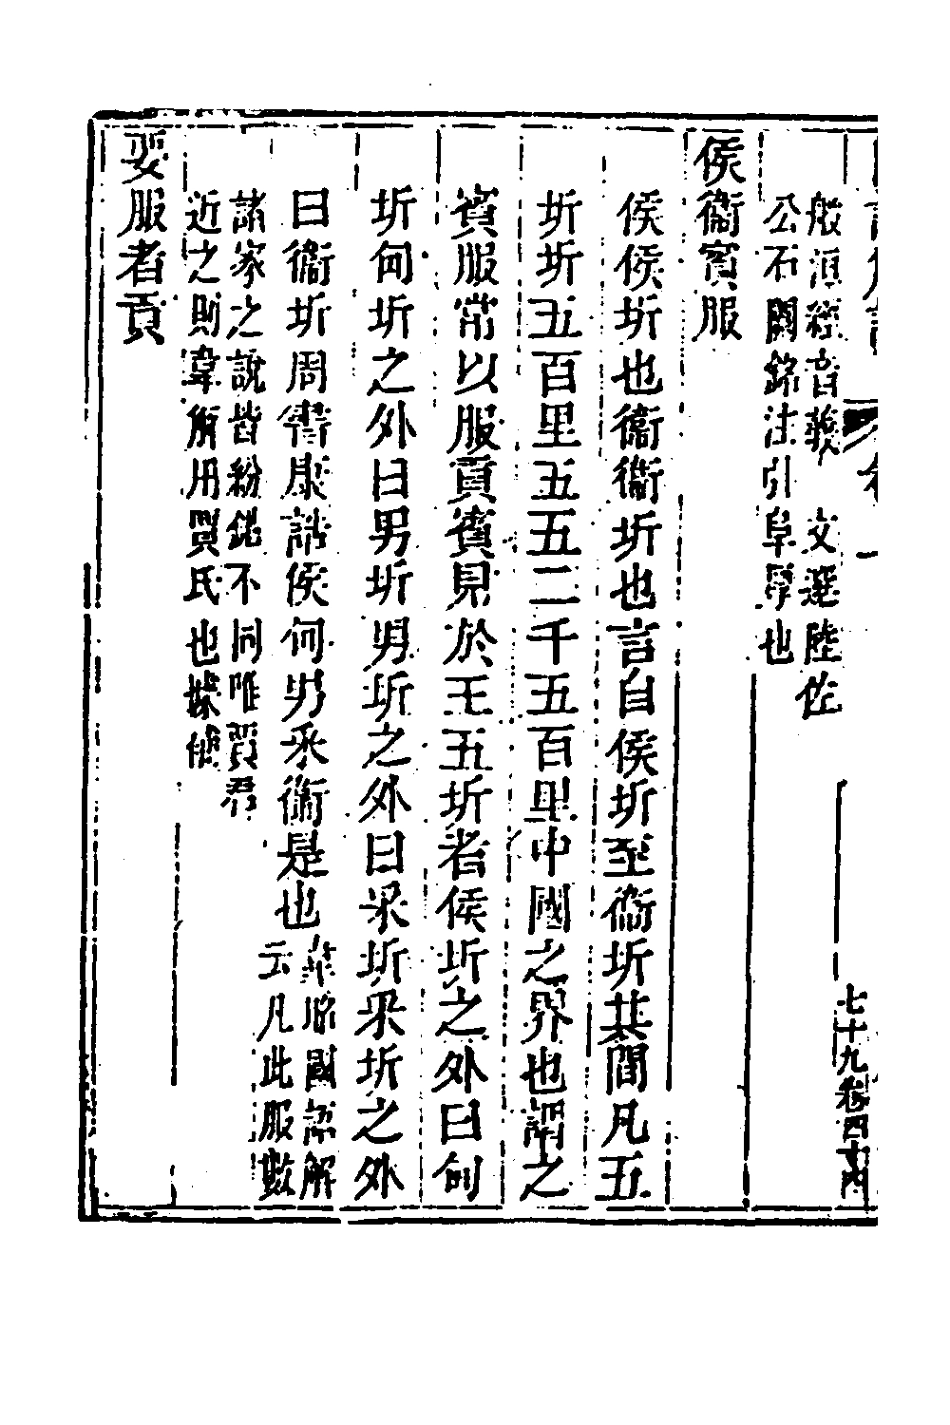 般洹經音義　文選陸佐
公石闕銘注引也
侯衞賓服
侯侯圻也衞衞圻也言自侯圻至衞圻其間凡五
圻圻五百里五五二千五百里中國之界也謂之
賓服常以服貢賓見於王五圻者侯圻之外曰甸
圻甸圻之外曰男圻男圻之外曰采圻采圻之外
曰衞圻周書康誥侯甸男采衞是也
韋昭國語解
云凡此服數
諸家之說皆紛錯不同唯賈君
近之則韋解用賈氏也據
要服者貢
七十九卷四